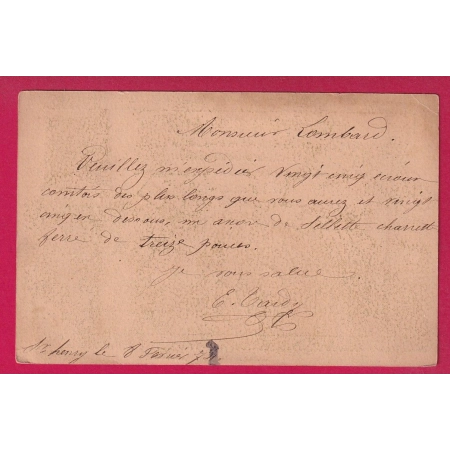 Monsieur Lombard.
Veuillez m'expédier Vingt cinq
comtois des plux longs que vous aurez et vingt
de Sellette charrett
ferre de treize pouces.
je vous salue.
E. Tardy
St henry le 8 Février